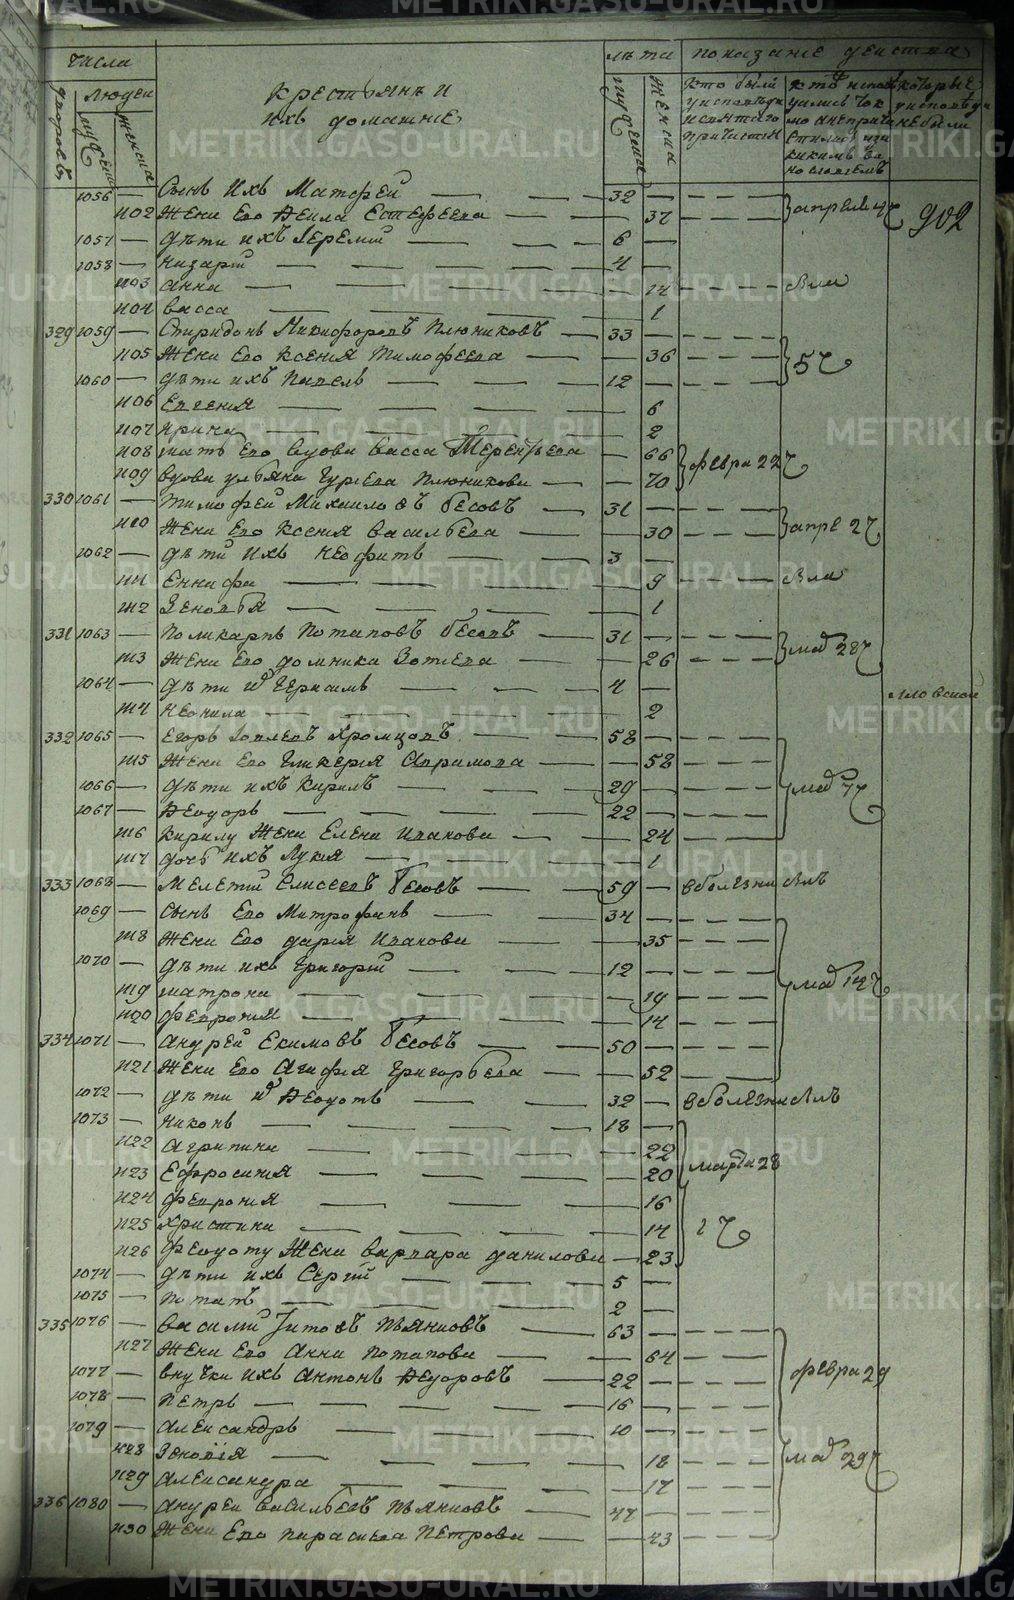 числа
лѣта показание действа
дворовъ
людеи
мужеска
женска
крестьяне и
ихъ домашние
мужеска
женска
кто были
у исповѣди
и святаго
причастия
которые
у исповѣди
не были
902
1056 — Сынъ ихъ Матфей — 32
1102 Жена Его Неила Естефеева — 37
апреля
1057 — дѣти ихъ Иеремий — 6
1058 — Назарий — 4
1103 Анна — 14
1104 Васса — 1
329 1059 — Спиридонъ Никифоровъ Плюсниковъ — 33
1105 Жена Его Ксения Тимофеева — 36
1060 — дѣти ихъ Павелъ — 12
1106 Евгения — 6
1107 Ирина — 2
1108 мать Его вдова Васса Терентьева — 66
1109 вдова Ульяна Гурьева Плюсникова — 70
февра 22
330 1061 — Тимофей Михаиловъ Бесовъ — 31
1110 Жена Его Ксения Васильева — 30
апре 27
1062 — дѣти ихъ Неофитъ — 3
1111 Еннафа — 9
1112 Зеновья — 1
331 1063 — Поликарпъ Потаповъ Бесовъ — 31
1113 Жена Его Домника Зотеева — 26
1064 — дѣти их Герасимъ — 4
1114 Неонила — 2
332 1065 — Егоръ Иовлевъ Хромцовъ — 58
1115 Жена Его Гликерия Аврамова — 58
1066 — дѣти ихъ Кирилъ — 29
1067 — Феодоръ — 22
1116 Кирилу Жена Елена Иванова — 24
1117 дочь ихъ Лукия — 1
333 1068 — Мелетий Елисеевъ Бесовъ — 59 — в болезни
1069 — Сынъ Его Митрофанъ — 34
1118 Жена Его Дария Иванова — 35
1070 — дѣти ихъ Григорий — 12
1119 Матрона — 19
1120 Феврония — 14
334 1071 — Андрей Екимовъ Бесовъ — 50
1121 Жена Его Агафия Григорьева — 52
1072 — дѣти их Феодотъ — 32 — в болезни
1073 — Никонъ — 18
1122 Агрипина — 22
1123 Ефросиния — 20
марта 28
1124 Феврония — 16
1125 Христина — 14
1126 Феодоту Жена Варвара Данилова — 23
1074 — дѣти ихъ Сергий — 5
1075 — Потапъ — 2
335 1076 — Василий Титовъ Пьянковъ — 63
1127 Жена Его Анна Потапова — 64
1077 — внучки ихъ Антонъ Федоровъ — 22
февра 29
1078 — Петръ — 16
1079 — Александръ — 10
1128 Зеновия — 18
1129 Александра — 17
336 1080 — Андреи Васильевъ Пьянковъ — 47
1130 Жена Его Парасковья Петрова — 43
METRIKI.GASO-URAL.RU